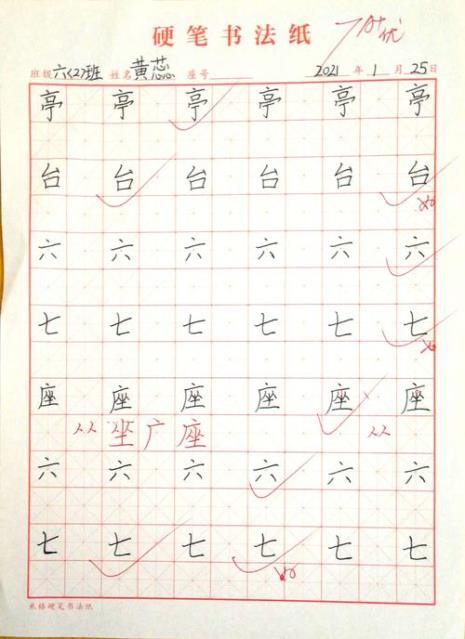 硬笔书法纸
A+
优
班级 六(2)班 姓名 黄芯 座号 2021 年 1 月 25 日
亭 亭 亭 亭 亭 亭
台 台 台 台 台 台
六 六 六 六 六 六
七 七 七 七 七 七
座 座 座 座 座 座
从 坐 广 座 从
六 六 六 六 六 六
七 七 七 七 七 七
米格硬笔书法纸